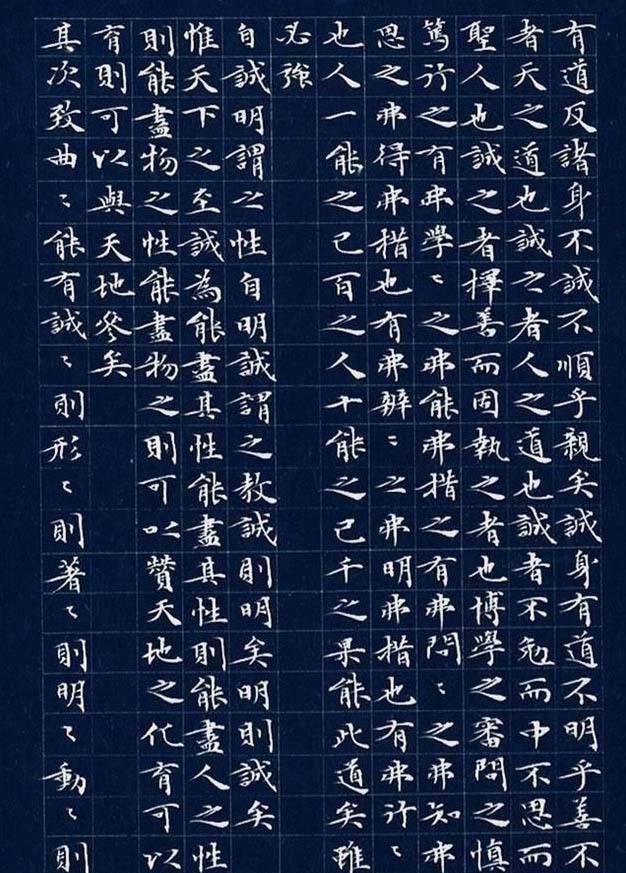 有道反諸身不誠不順乎親矣誠身有道不明乎善不
者天之道也誠之者人之道也誠者不勉而中不思而
聖人也誠之者擇善而固執之者也博學之審問之慎
篤行之有弗學〻之弗能弗措之有弗問〻之弗知弗
思之弗得弗措也有弗辨〻之弗明弗措也有弗行〻
也人一能之己百之人十能之己千之果能此道矣雖
必強
自誠明謂之性自明誠謂之教誠則明矣明則誠矣
惟天下之至誠為能盡其性能盡其性則能盡人之性
則能盡物之性能盡物之則可以贊天地之化育可以
育則可以與天地參矣
其次致曲〻能有誠〻則形〻則著〻則明〻動〻則